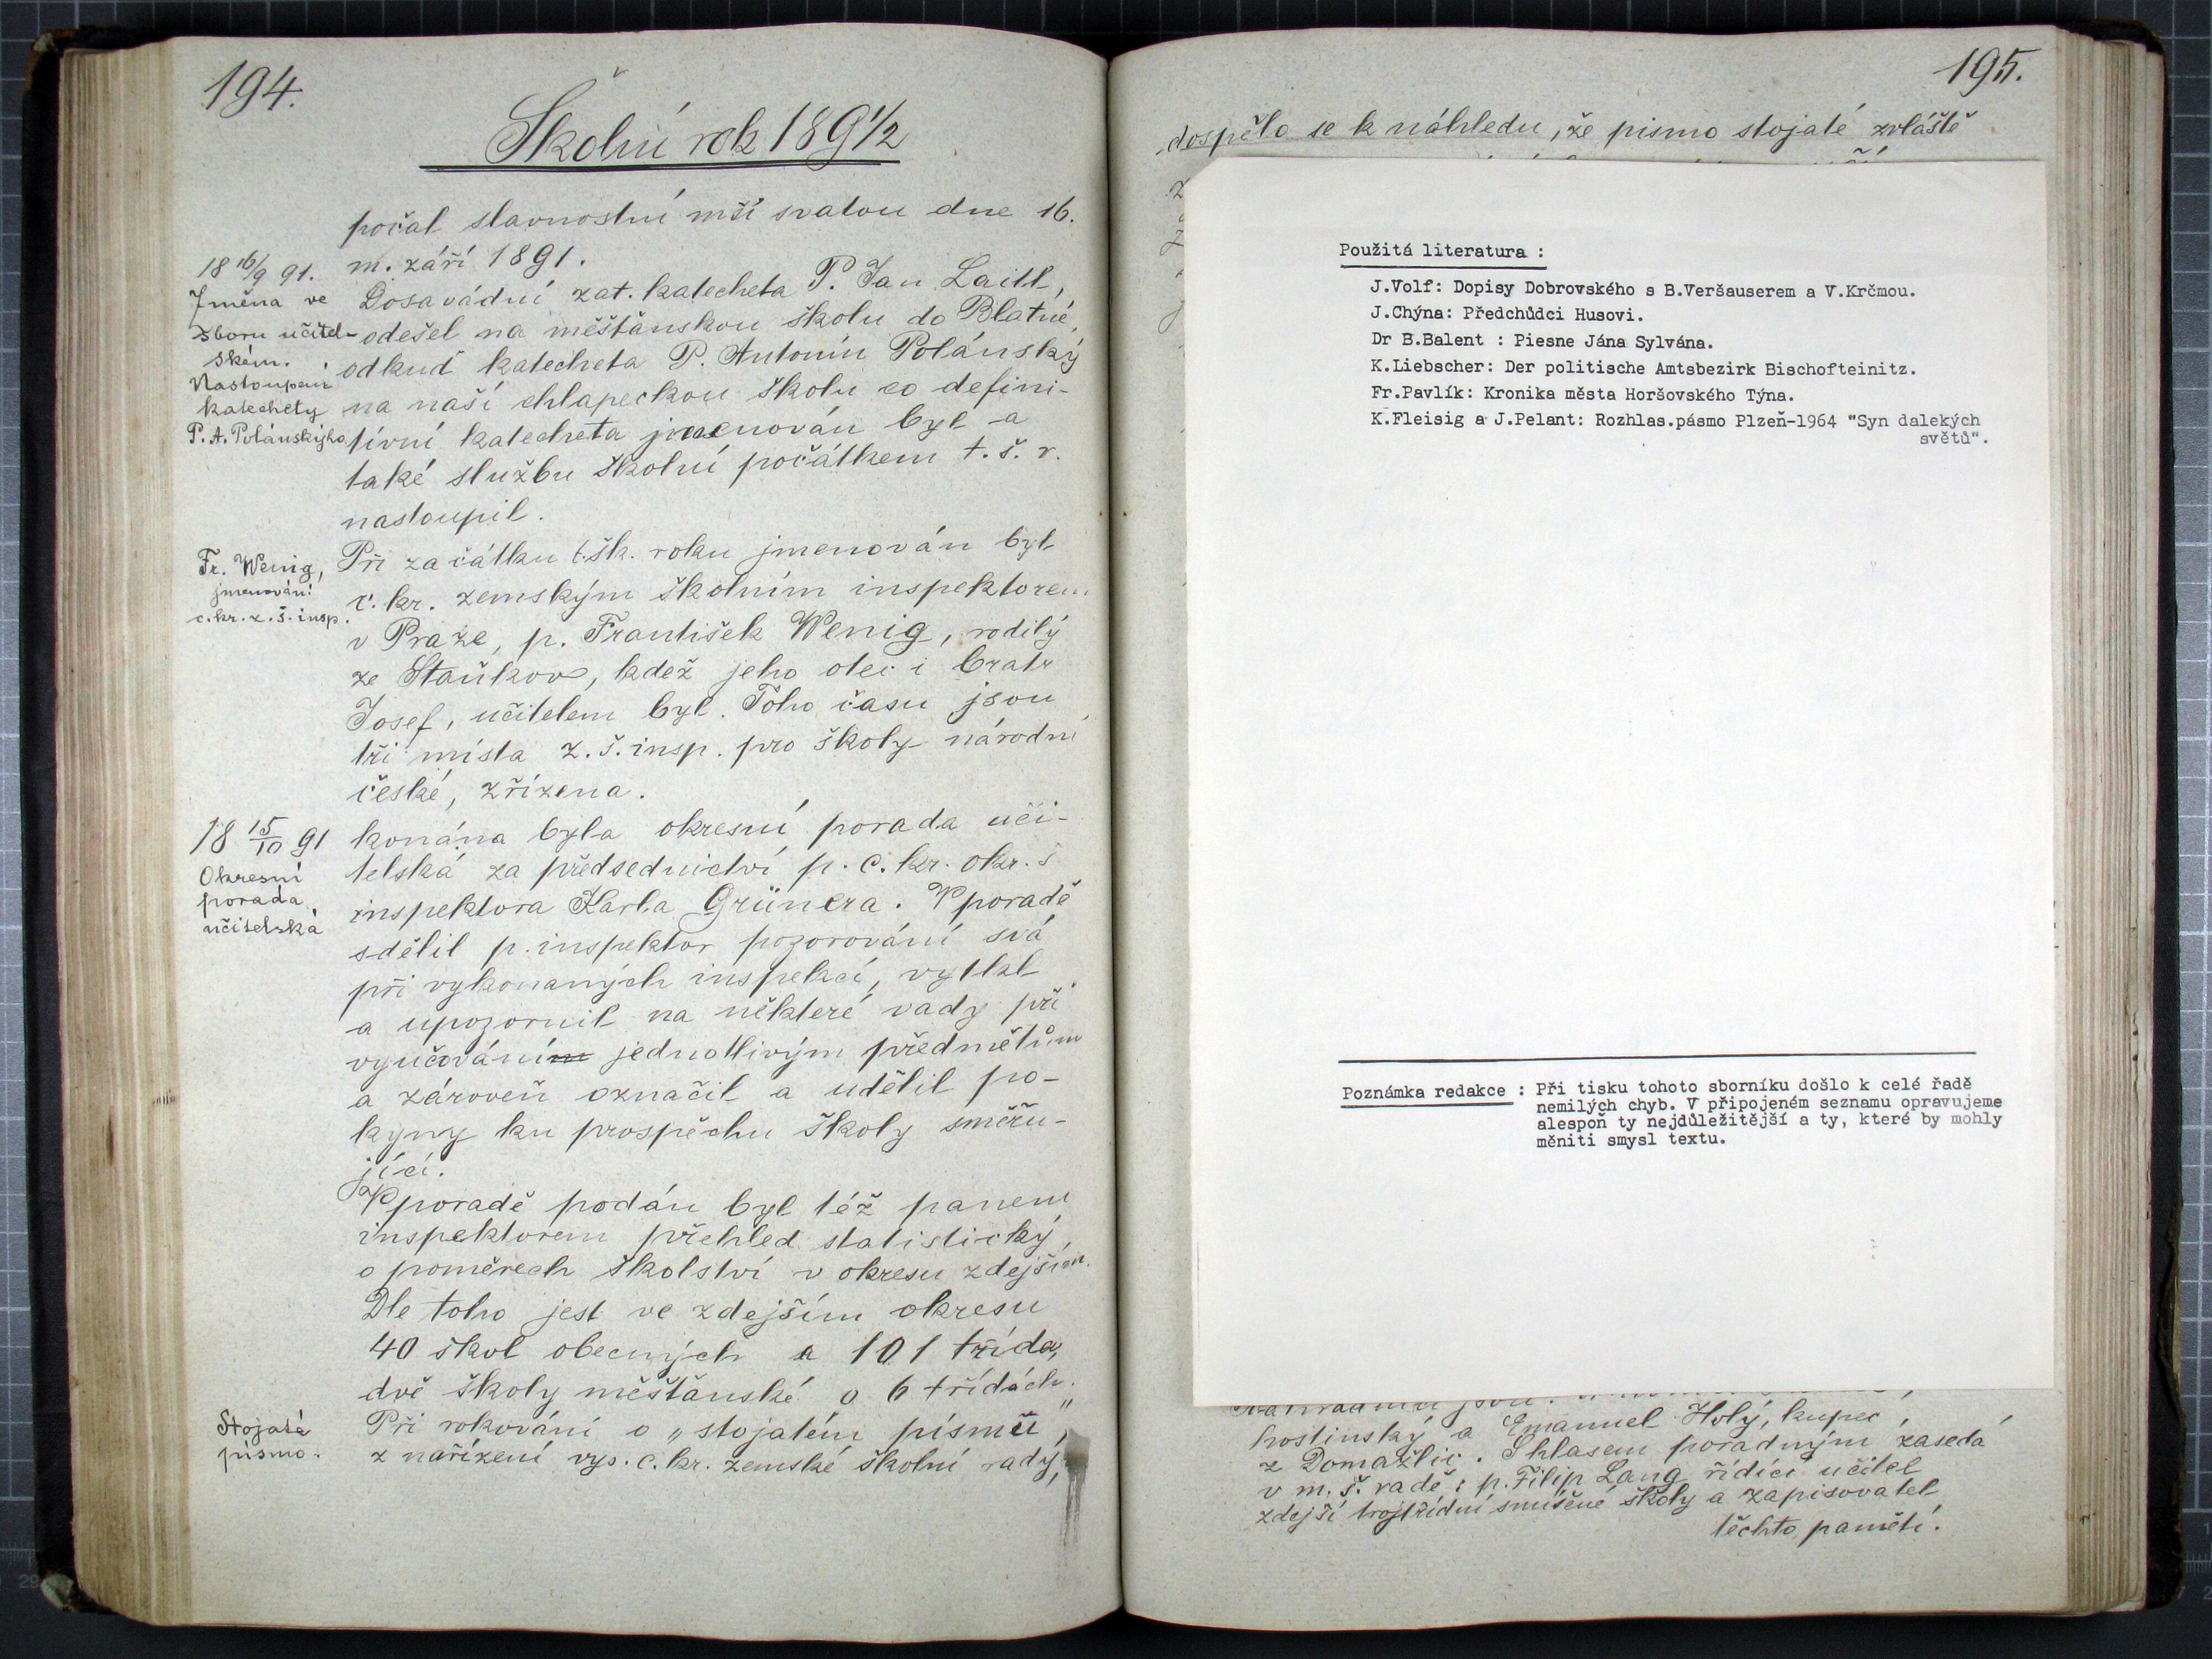 194.
Školní rok 1891/2
počal slavnostní mší svatou dne 16.
18 16/9 91. m. září 1891.
Jména ve
sboru učitel-
ském.
Nastoupení
katechety
P. A. Polánskýho
Dosavádní zat. katecheta P. Jan Laitl,
odešel na měšťanskou školu do Blatné,
odkud katecheta P. Antonín Polánský
na naší chlapeckou školu co defini-
tivní katecheta jmenován byl a
také službu školní počátkem t. š. r.
nastoupil.
Fr. Wenig,
jmenování
c. kr. z. š. insp.
Při začátku t. šk. roku jmenován byl
c. kr. zemským školním inspektorem
v Praze, p. František Wenig, rodilý
ze Staňkova, kdež jeho otec i bratr
Josef, učitelem byl. Toho času jsou
tři místa z. š. insp. pro školy národní
české, zřízena.
18 15/10 91
Okresní
porada
učitelská
konána byla okresní porada uči-
telská za předsednictví p. c. kr. okr. š
inspektora Karla Grünera. V poradě
sdělil p. inspektor pozorování svá
při vykonaných inspekcí, vytkl
a upozornil na některé vady při
vyučováním jednotlivým předmětům
a zároveň označil a udělil po-
kyny ku prospěchu školy směřu-
jící.
V poradě podán byl též panem
inspektorem přehled statistický,
o poměrech školství v okresu zdejším.
Dle toho jest ve zdejším okresu
40 škol obecných a 101 třída,
dvě školy měšťanské o 6 třídách.
Stojaté
písmo.
Při rokování o „stojatém písmě",
z nařízení vys. c. kr. zemské školní rady,
195.
dospělo se k náhledu, že pismo stojaté zvláště
Použitá literatura :
J.Volf: Dopisy Dobrovského s B.Veršauserem a V.Krčmou.
J.Chýna: Předchůdci Husovi.
Dr B.Balent : Piesne Jána Sylvána.
K.Liebscher: Der politische Amtsbezirk Bischofteinitz.
Fr.Pavlík: Kronika města Horšovského Týna.
K.Fleisig a J.Pelant: Rozhlas.pásmo Plzeň-1964 "Syn dalekých
světů".
Poznámka redakce : Při tisku tohoto sborníku došlo k celé řadě
nemilých chyb. V připojeném seznamu opravujeme
alespoň ty nejdůležitější a ty, které by mohly
měniti smysl textu.
hostinský a Emanuel Holý, kupec,
z Domažlic. S hlasem poradným zasedá
v m. š. radě: p. Filip Lang řídící učitel
zdejší trojtřídní smíšené školy a zapisovatel
těchto pamětí.